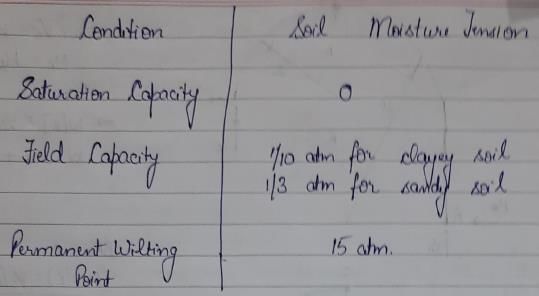 Condition Soil Moisture Tension
Saturation Capacity 0
Field Capacity 1/10 atm for clayey soil
1/3 atm for sandy soil
Permanent Wilting 15 atm.
Point